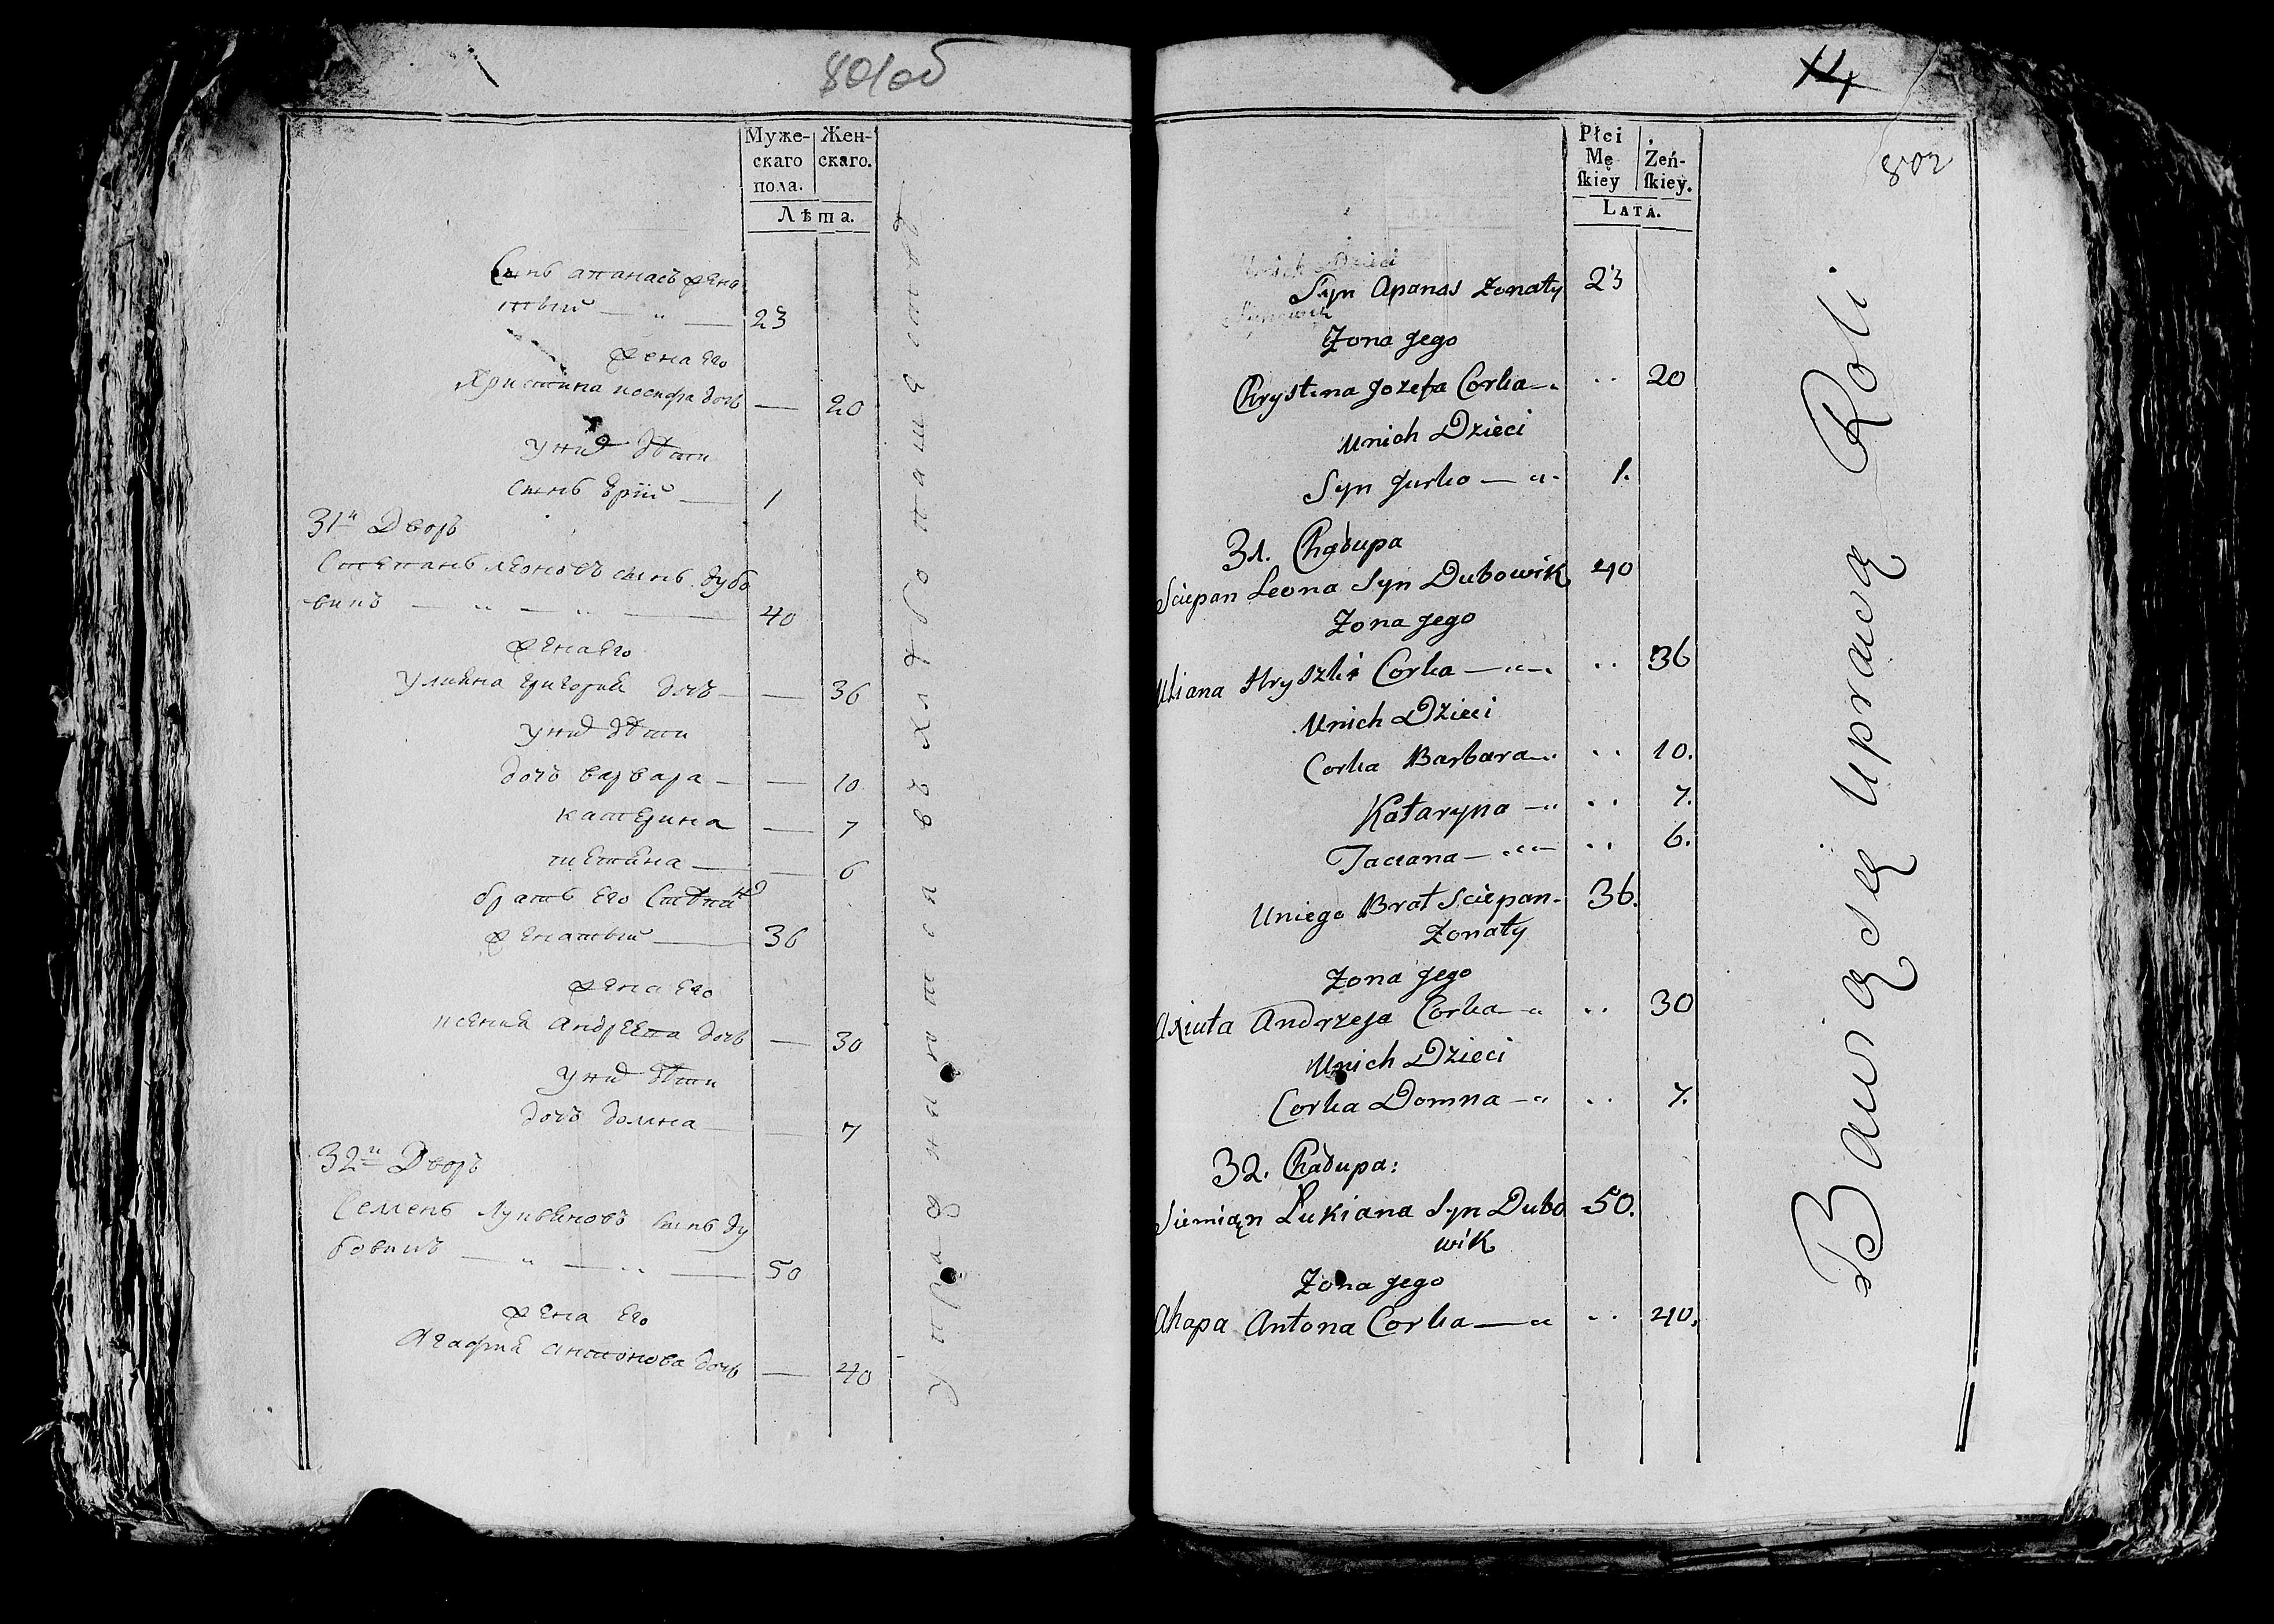 801об
Муже-
скаго
пола.
Жен-
скаго.
Лѣта.
Сынъ апанасъ жена
тый — " — 23
жена его
Христина иосифа дочь — 20
у них дѣти
сынъ Юрiй — 1
31й Дворъ
Степанъ леоновъ сынъ дубо
викъ — " — " — 40
жена его
улияна григория дочь — — 36
у них дѣти
дочь варвара — — 10
катерина — 7
татияна — — 6
братъ его Степан
женатый — 36
жена его
ксения андреева дочь — 30
у них дѣти
дочь домна — — 7
32й Дворъ
Семенъ лукьяновъ сынъ ду
бовикъ — " — " — 50
жена его
Агафия антонова дочь — 40
14
802
Płci
Mę
ſkiey
Żeń-
ſkiey.
LATA.
Syn Apanas Zonaty 23
Zona Jego
Chrystina Jozefa Corka — .. 20
Unich Dzieci
Syn Jurko — " - 1.
31. Chałupa
Sciepan Leona Syn Dubowik 40
Zona Jego
Uliana Hryszki Corka — " — .. 36
Unich Dzieci
Corka Barbara — .. 10.
Kataryna — " .. 7.
Taciana — " — .. 6.
Uniego Brat Sciepan - 36.
Zonaty
Zona Jego
Axiuta Andrzeja Corka — " .. 30
Unich Dzieci
Corka Domna — " .. 7.
32. Chałupa:
Siemian Łukiana Syn Dubo 50.
wik
Zona Jego
Ahapa Antona Corka — " .. 40.
Bawiąsię Uprawą Roli